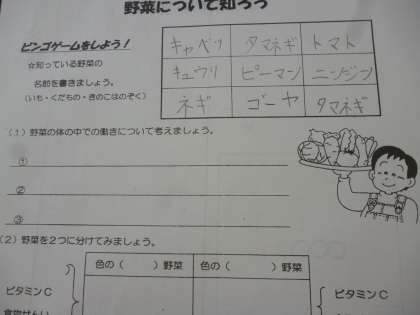 野菜について知ろう
ビンゴゲームをしよう！
☆知っている野菜の
名前を書きましょう。
（いも・くだもの・きのこはのぞく）
キャベツ タマネギ トマト
キュウリ ピーマン ニンジン
ネギ ゴーヤ タマネギ
（１）野菜の体の中での働きについて考えましょう。
①
②
③
（２）野菜を２つに分けてみましょう。
色の（　　）野菜 色の（　　）野菜
ビタミンＣ ビタミンＣ
食物せんい